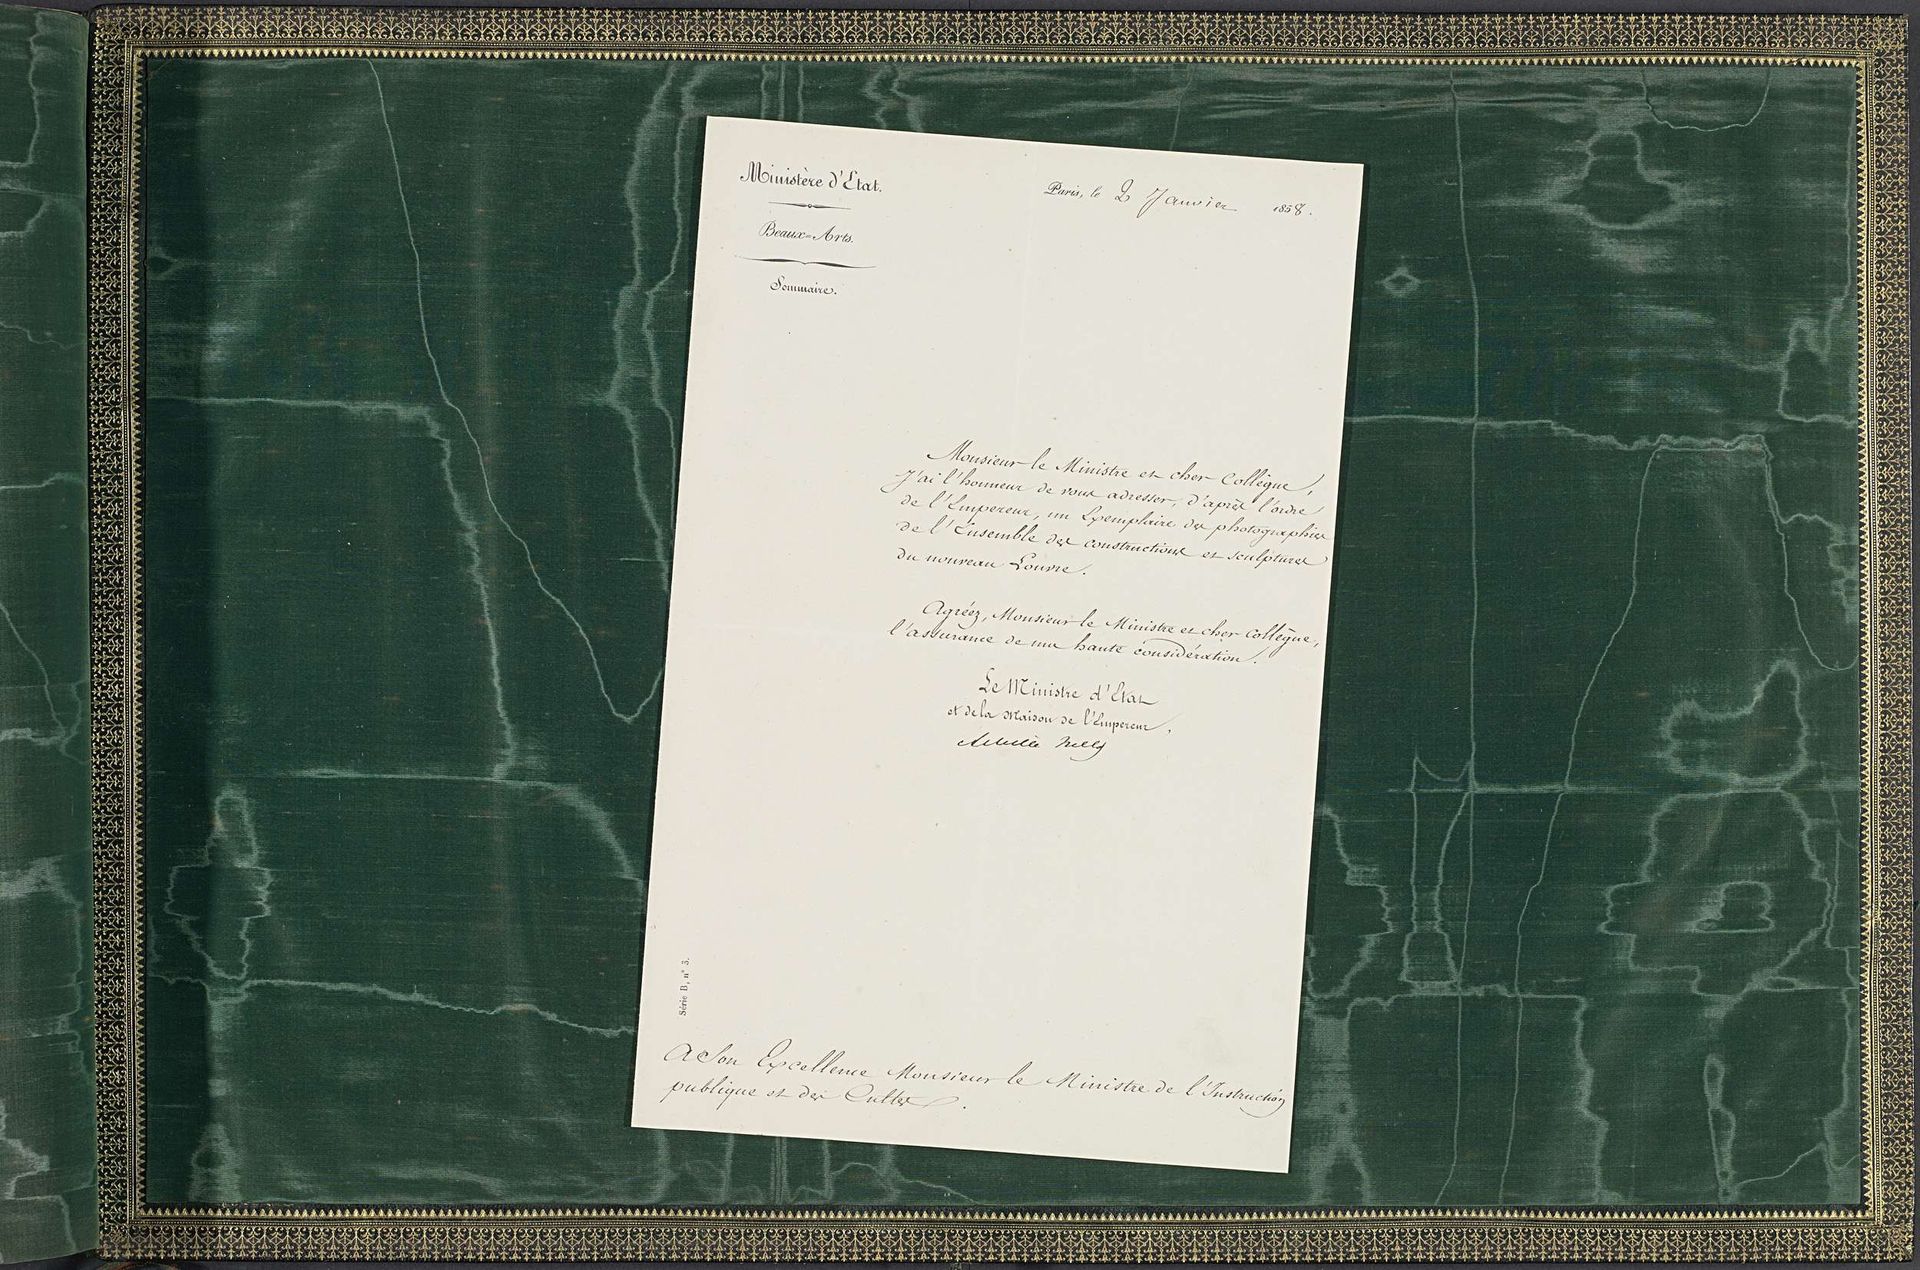 Ministère d'Etat.
Beaux=Arts.
Sommaire.
Paris, le 2 Janvier 1858.
Monsieur le Ministre et cher Collègue,
J'ai l'honneur de vous adresser, d'après l'ordre
de l'Empereur, un Exemplaire des photographies
de l'Ensemble des constructions et sculptures
du nouveau Louvre.
Agréez, Monsieur le Ministre et cher Collègue,
l'assurance de ma haute considération.
Le Ministre d'Etat
et de la Maison de l'Empereur,
Achille Fould
Série B, n° 3.
A Son Excellence Monsieur le Ministre de l'Instruction
publique et des Cultes.